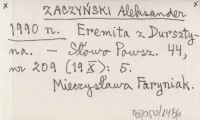 ZACZYŃSKI Aleksander
1990 n. Eremita z Durszty-
na. — Słowo Powsz. 44,
nr 209 (19 X): 5.
Mieczysława Faryniak.